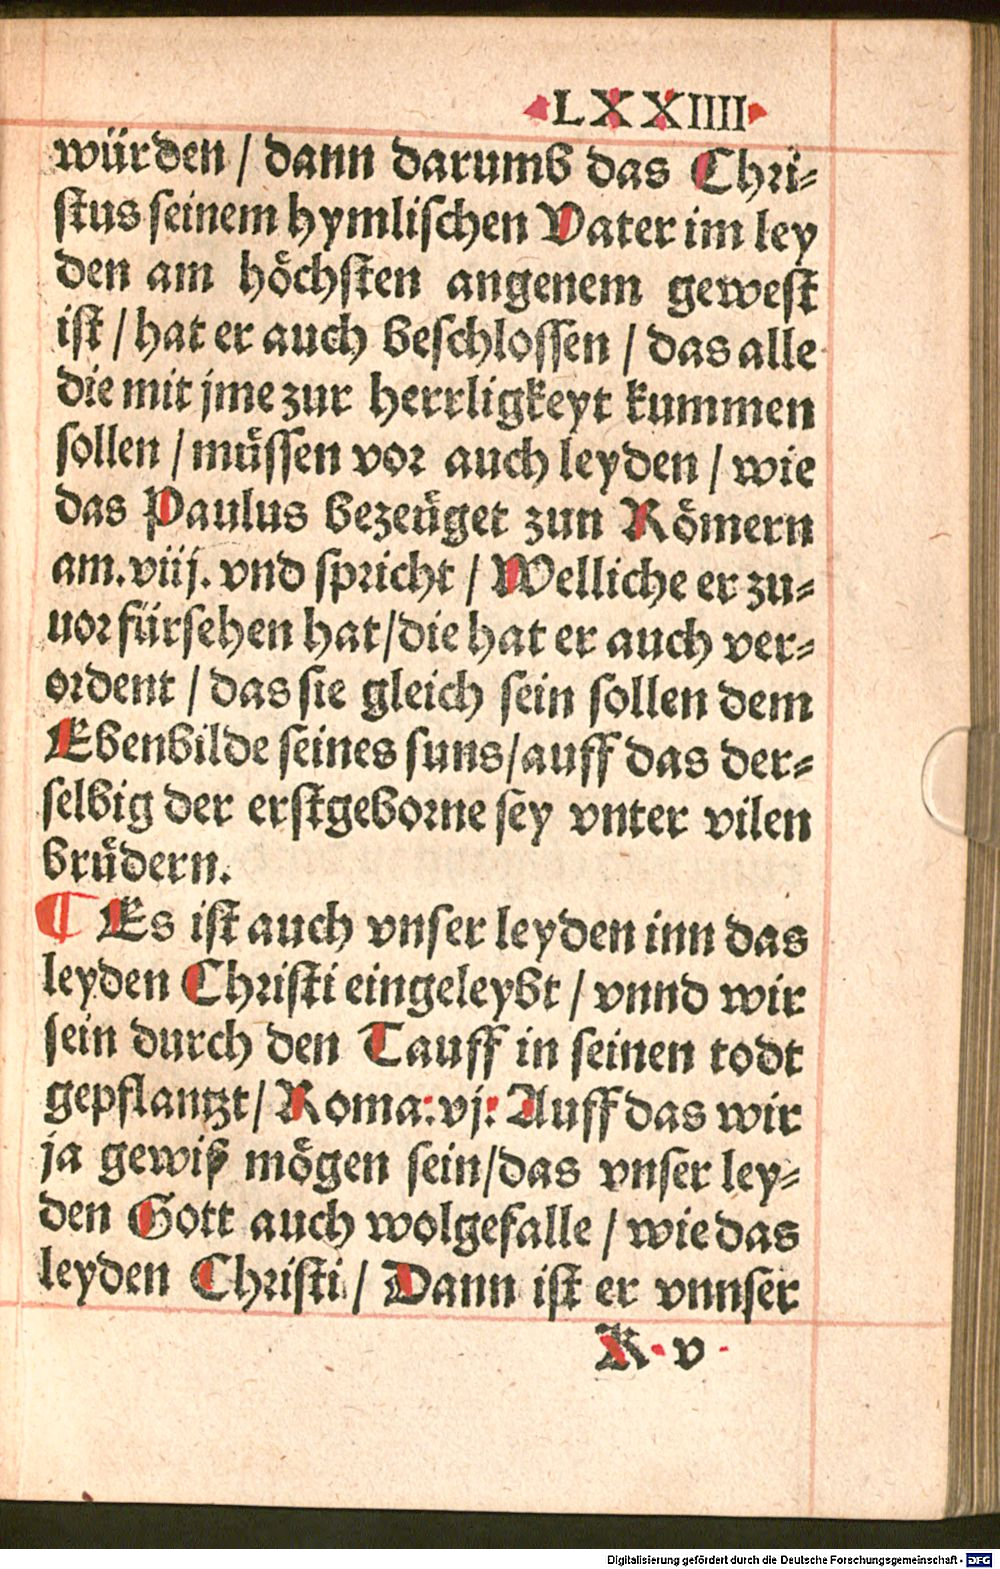 LXXIIII
würden / dann darumb das Chri-
stus seinem hymlischen Vater im ley
den am höchsten angenem gewest
ist / hat er auch beschlossen / das alle
die mit jme zur herrligkeyt kummen
sollen / müssen vor auch leyden / wie
das Paulus bezeüget zun Römern
am.viij. vnd spricht / Welliche er zu-
uor fürsehen hat/die hat er auch ver-
ordent / das sie gleich sein sollen dem
Ebenbilde seines suns/auff das der-
selbig der erstgeborne sey vnter vilen
brüdern.
¶ Es ist auch vnser leyden inn das
leyden Christi eingeleybt / vnnd wir
sein durch den Tauff in seinen todt
gepflantzt/ Roma:vj: Auff das wir
ja gewiß mögen sein/das vnser ley-
den Gott auch wolgefalle / wie das
leyden Christi / Dann ist er vnnser
K v
Digitalisierung gefördert durch die Deutsche Forschungsgemeinschaft - DFG